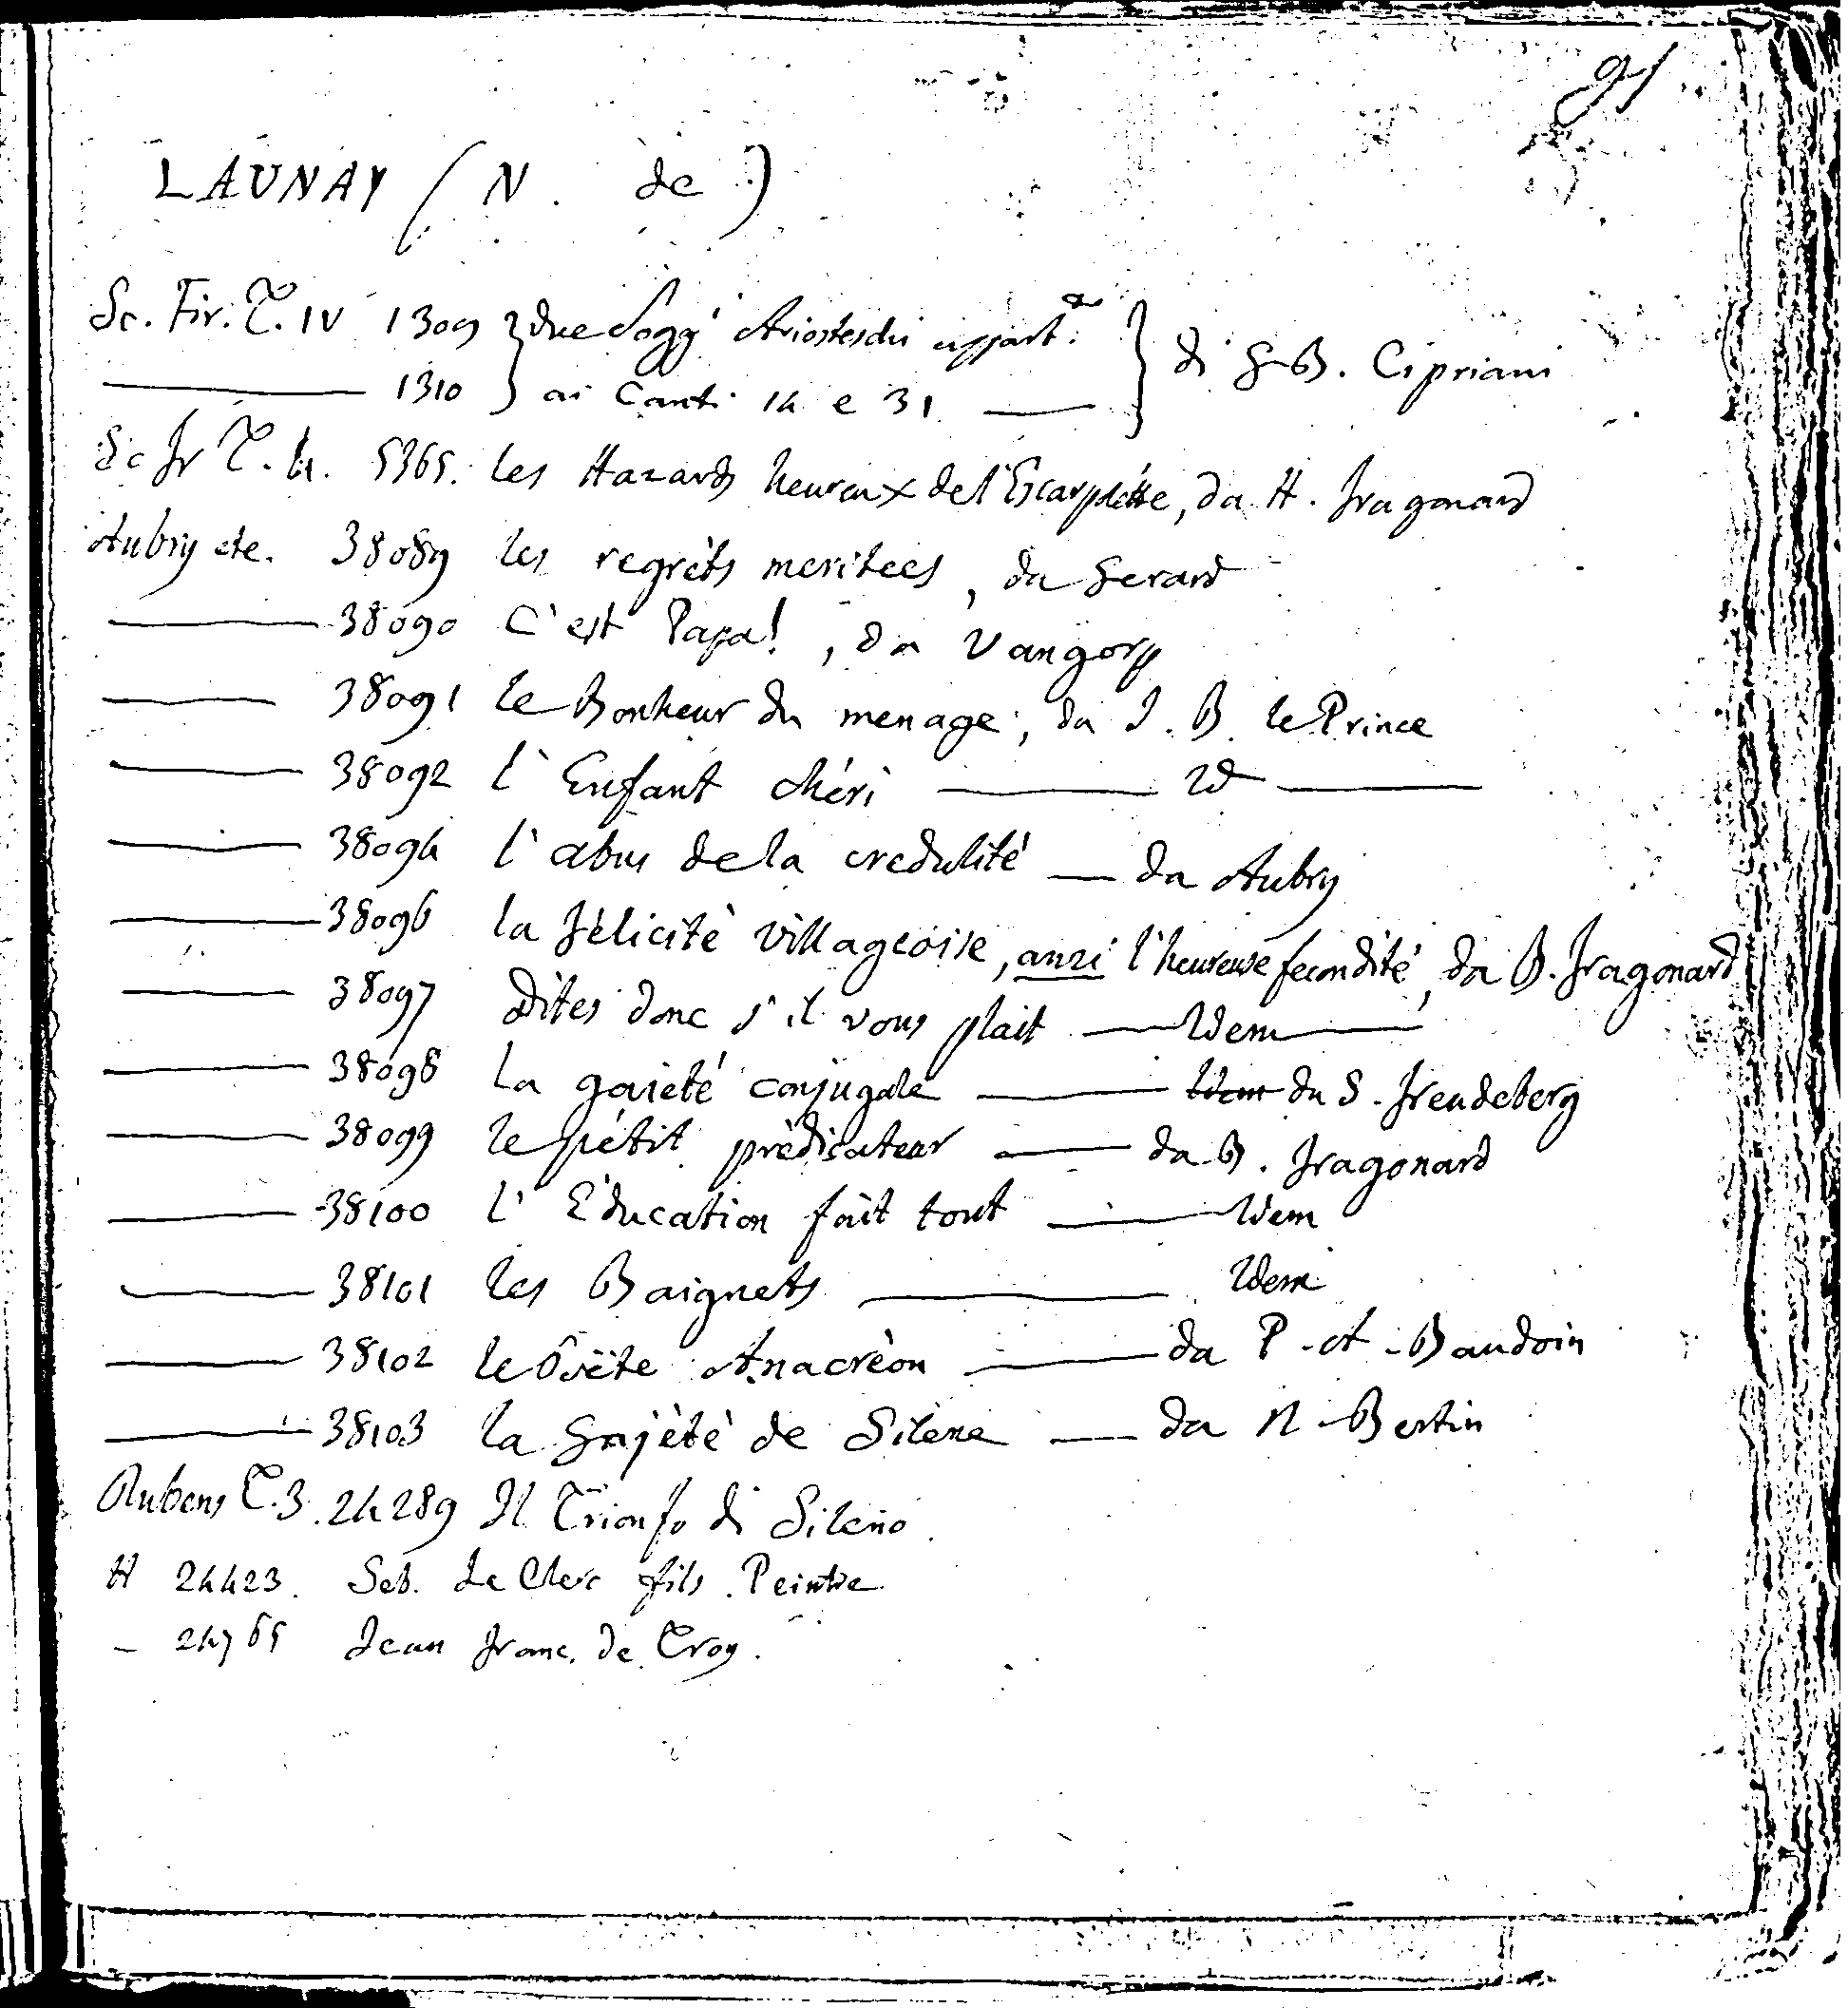 91
LAUNAY (N. de)
Sc. Fir. T. IV 1309 } due Sogg.i Ariosteschi appart.
——— 1310 } ai Canti 14 e 31. —— } di G. B. Cipriani
Sc Fr T. 4. 5365. les Hazards heureux de l'Escarpolette, da H. Fragonard
Aubry etc. 38089 les regrèts meritees, da Gerard
——— 38090 C'est Papa!, da Vangorp
——— 38091 le Bonheur du menage, da J. B. le Prince
——— 38092 l'Enfant chéri ——— Id ———
——— 38094 l'abus de la credulité — da Aubry
——— 38096 la félicité villageoise, anzi l'heureuse fecondité, da B. Fragonard
——— 38097 dites donc s'il vous plait —— Idem ——
——— 38098 la gaieté conjugale ——— Idem da S. Freudeberg
——— 38099 le pétit prédicateur —— da B. Fragonard
——— 38100 l'Education fait tout ——— Idem
——— 38101 les Baignets ——— Idem
——— 38102 le Poëte Anacrèon ——— da P. A. Baudoin
——— 38103 la Gajété de Silene —— da N. Bertin
Rubens T. 3. 24289 Il Trionfo di Sileno.
H 24423. Seb. Le Clerc fils. Peintre
— 24765 Jean Franc. de Troy.